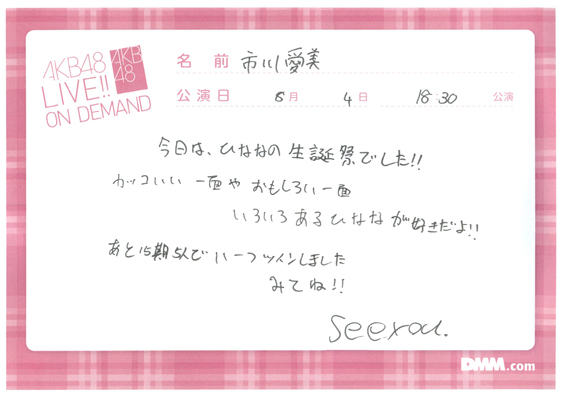 AKB48
LIVE!!
ON DEMAND
AKB
48
名前 市川愛美
公演日 6月 4日 18:30 公演
今日は、ひななの生誕祭でした!!
カッコいい一面やおもしろい一面
いろいろあるひななが好きだよ!!
あと15期5人でハーフツインしました
みてね!!
see you.
DMM.com